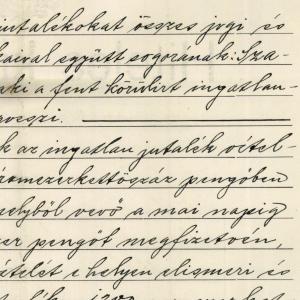 jutalékokat összes jogi és
kaival együtt sogorának: Sza-
aki a fent körülirt ingatlan-
veszi.
k az ingatlan jutalék vétel-
romezerkettőszáz pengőben
melyből vevő a mai napig
zer pengőt megfizetvén,
ételét e helyen elismeri és